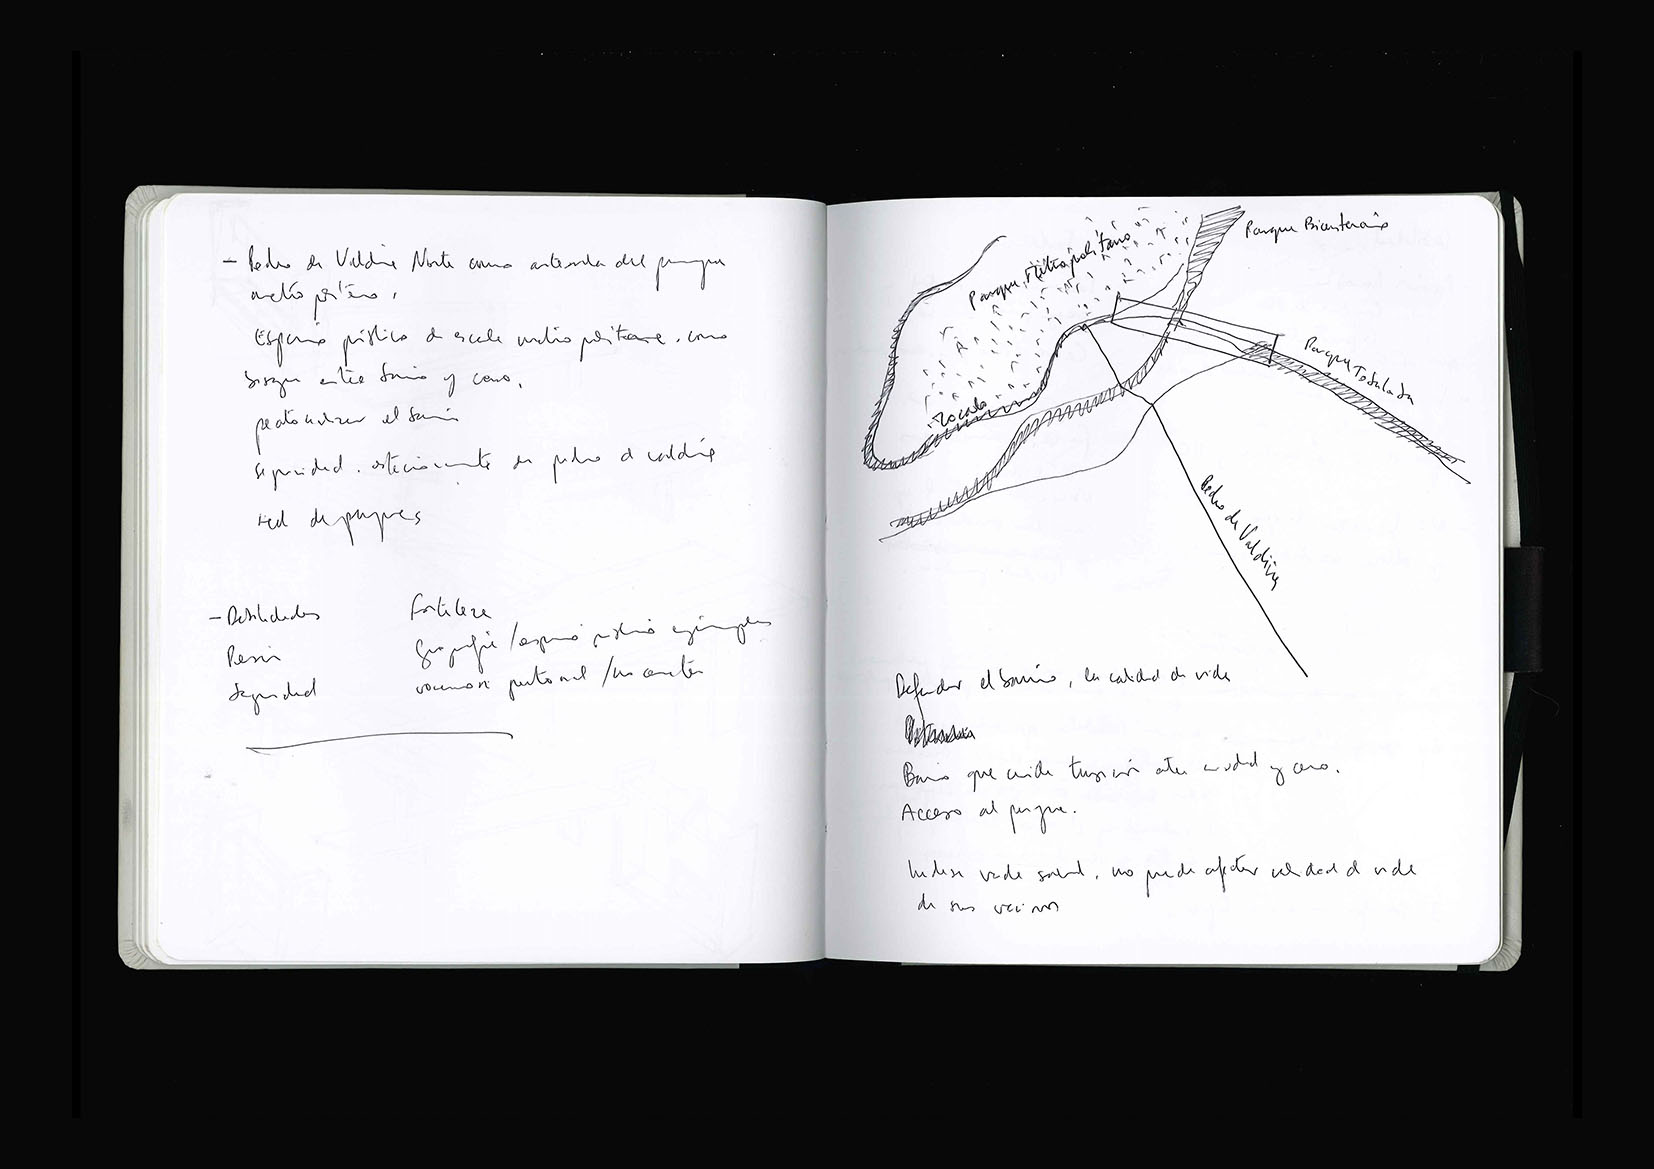 - Pedro de Valdivia Norte como antesala del parque
metropolitano.
Espacio público de escala metropolitana. como
bisagra entre barrio y cerro.
peatonalizar el barrio
seguridad. estacionamiento de pedro de valdivia
red de parques
- Debilidades Fortaleza
Seguridad
Geografía / espacio público
peatonal /
Parque Bicentenario
Parque Metropolitano
Zocalo
Parque Tobalaba
Pedro de Valdivia
Defender el barrio, la calidad de vida
Barrio que cuida entre ciudad y cerro.
Acceso al parque.
no puede afectar calidad de vida
de sus vecinos